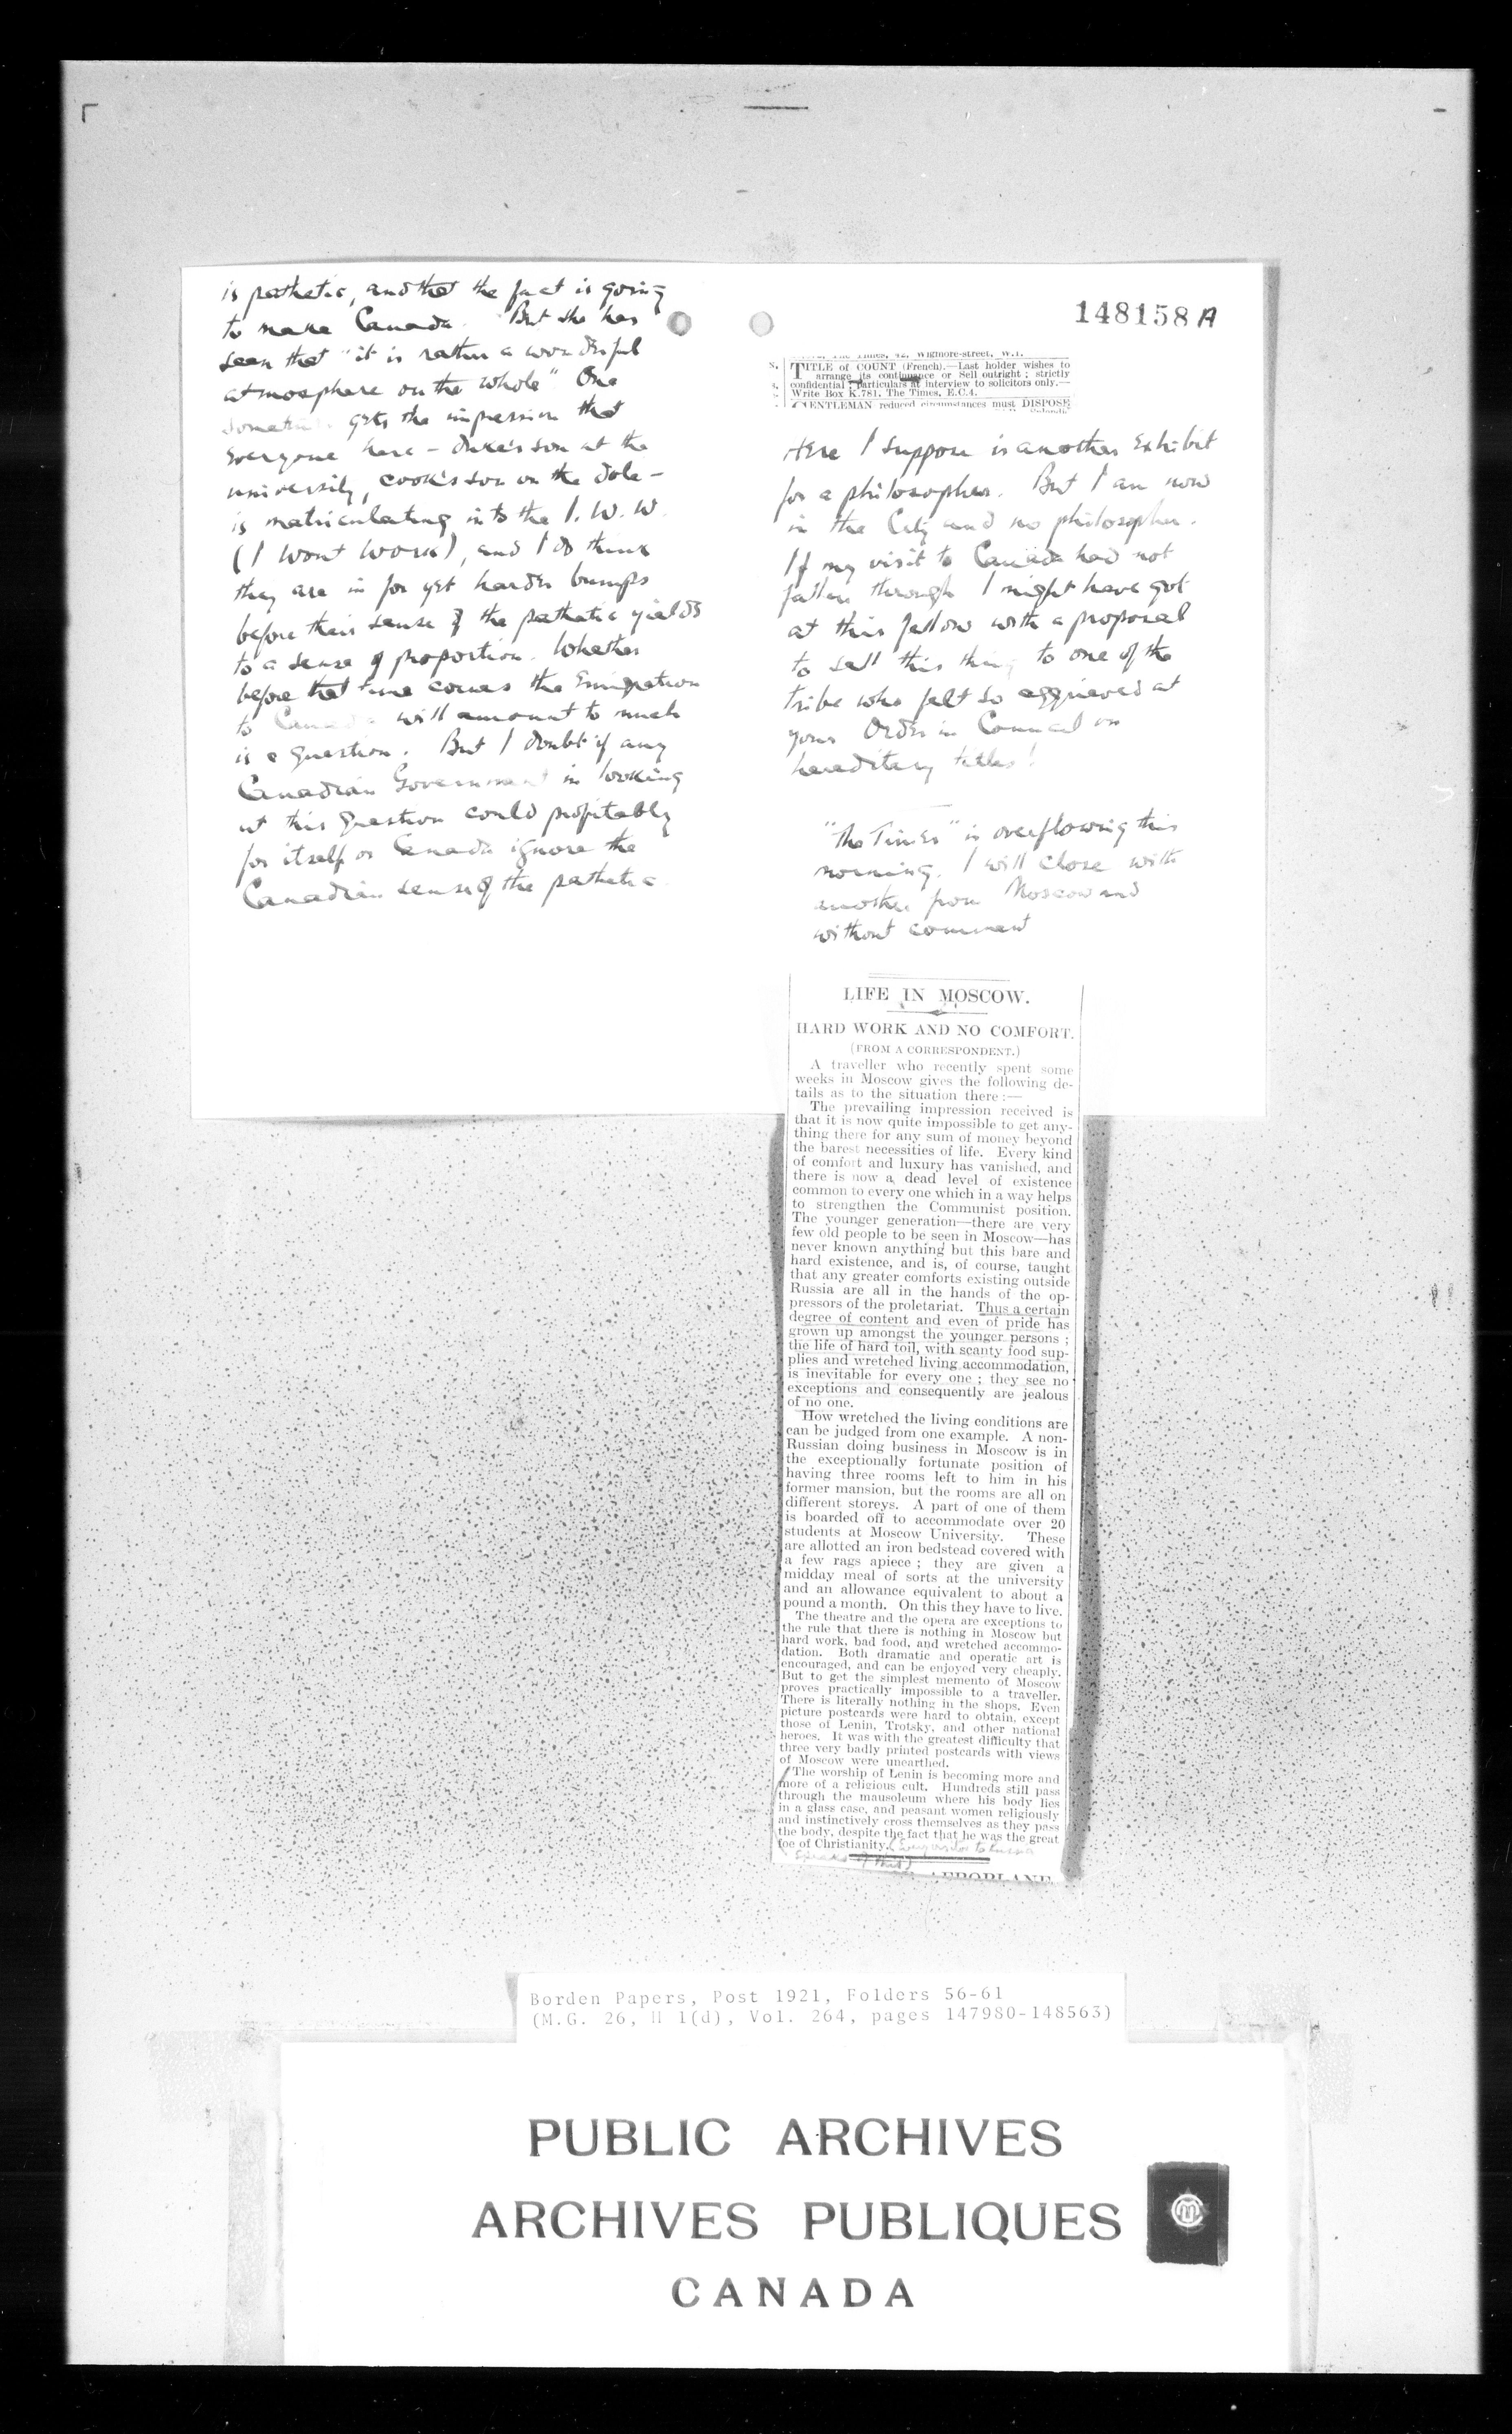 is pathetic, and that the fact is going
to make Canada. But she has
seen that "it is rather a wonderful
atmosphere on the whole". One
gets the impression that
everyone here - Duke's son at the
university, cook's son on the dole -
is matriculating into the I. W. W.
(I Wont Work), and I do think
they are in for yet harder bumps
before their sense of the pathetic yields
to a sense of proportion. Whether
before that time comes the Emigration
to Canada will amount to much
is a question. But I doubt if any
Canadian Government in looking
at this question could profitably
for itself or Canada ignore the
Canadian sense of the pathetic.
148158A
The Times, 42, Wigmore-street, W.1.
TITLE of COUNT (French).—Last holder wishes to
arrange its continuance or Sell outright ; strictly
confidential ; particulars at interview to solicitors only.—
Write Box K.781, The Times, E.C.4.
GENTLEMAN reduced circumstances must DISPOSE
Here I suppose is another Exhibit
for a philosopher. But I am now
in the City and no philosopher.
If my visit to Canada had not
fallen through I might have got
at this fellow with a proposal
to sell this thing to one of the
tribe who felt so aggrieved at
your Order in Council on
hereditary titles!
"The Times" is overflowing this
morning. I will close with
another from Moscow and
without comment
LIFE IN MOSCOW.
HARD WORK AND NO COMFORT.
(FROM A CORRESPONDENT.)
A traveller who recently spent some
weeks in Moscow gives the following de-
tails as to the situation there :—
The prevailing impression received is
that it is now quite impossible to get any-
thing there for any sum of money beyond
the barest necessities of life. Every kind
of comfort and luxury has vanished, and
there is now a dead level of existence
common to every one which in a way helps
to strengthen the Communist position.
The younger generation—there are very
few old people to be seen in Moscow—has
never known anything but this bare and
hard existence, and is, of course, taught
that any greater comforts existing outside
Russia are all in the hands of the op-
pressors of the proletariat. Thus a certain
degree of content and even of pride has
grown up amongst the younger persons ;
the life of hard toil, with scanty food sup-
plies and wretched living accommodation,
is inevitable for every one ; they see no
exceptions and consequently are jealous
of no one.
How wretched the living conditions are
can be judged from one example. A non-
Russian doing business in Moscow is in
the exceptionally fortunate position of
having three rooms left to him in his
former mansion, but the rooms are all on
different storeys. A part of one of them
is boarded off to accommodate over 20
students at Moscow University. These
are allotted an iron bedstead covered with
a few rags apiece ; they are given a
midday meal of sorts at the university
and an allowance equivalent to about a
pound a month. On this they have to live.
The theatre and the opera are exceptions to
the rule that there is nothing in Moscow but
hard work, bad food, and wretched accommo-
dation. Both dramatic and operatic art is
encouraged, and can be enjoyed very cheaply.
But to get the simplest memento of Moscow
proves practically impossible to a traveller.
There is literally nothing in the shops. Even
picture postcards were hard to obtain, except
those of Lenin, Trotsky, and other national
heroes. It was with the greatest difficulty that
three very badly printed postcards with views
of Moscow were unearthed.
The worship of Lenin is becoming more and
more of a religious cult. Hundreds still pass
through the mausoleum where his body lies
in a glass case, and peasant women religiously
and instinctively cross themselves as they pass
the body, despite the fact that he was the great
foe of Christianity. (Every visitor to Russia
speaks of this)
AEROPLANE
Borden Papers, Post 1921, Folders 56-61
(M.G. 26, H 1(d), Vol. 264, pages 147980-148563)
PUBLIC ARCHIVES
ARCHIVES PUBLIQUES
CANADA